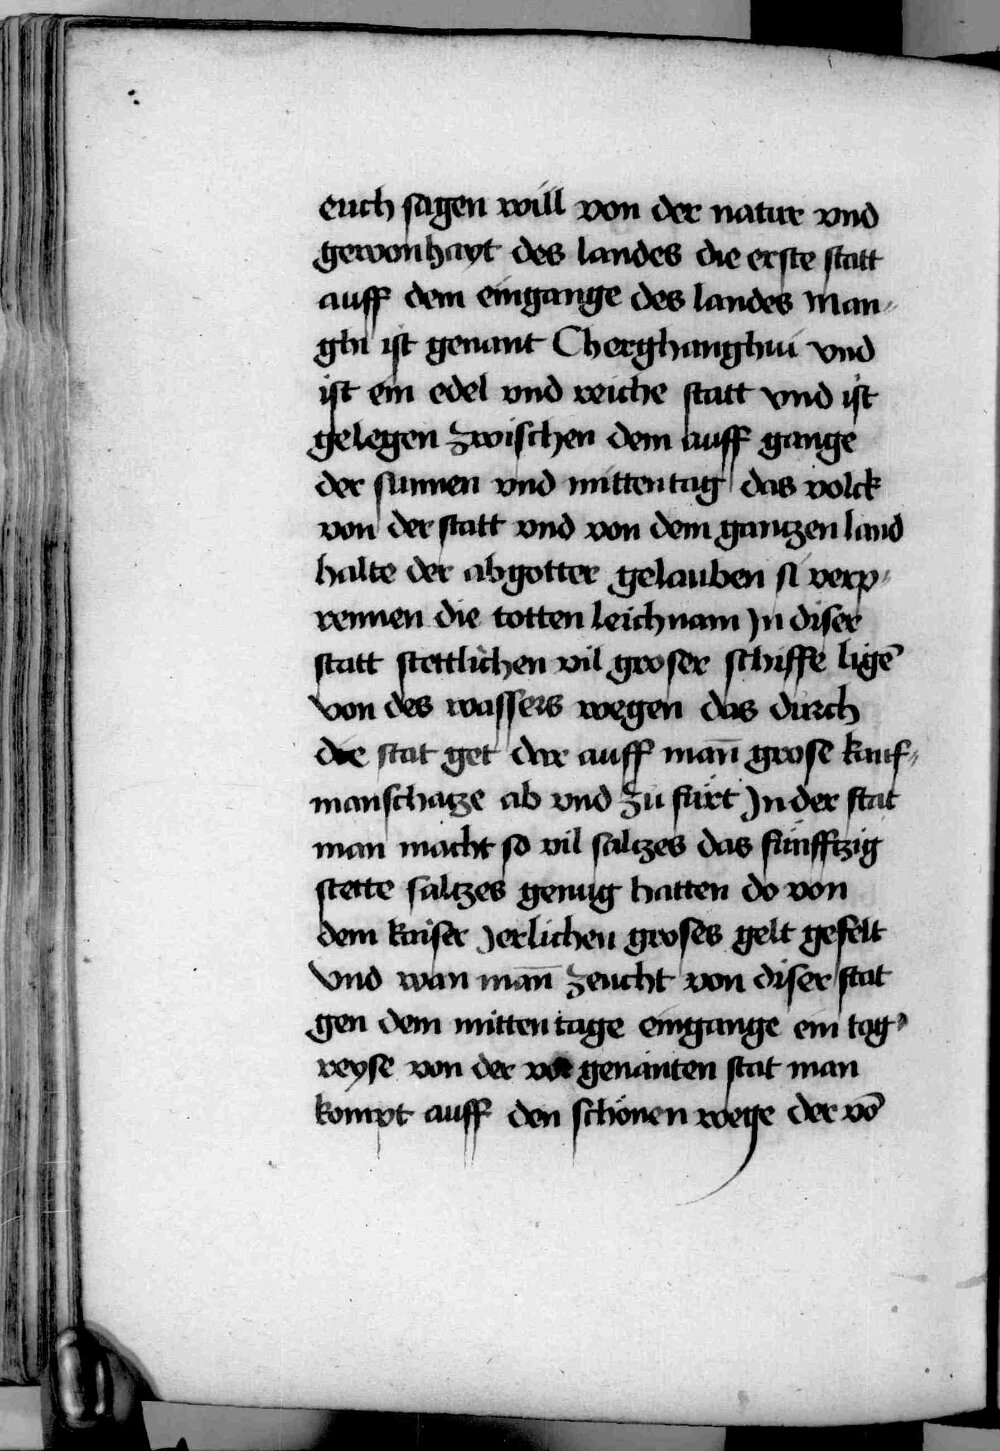 euch sagen will von der natur vnd
gewonhayt des landes die erste statt
auff dem eingange des landes Man⸗
ghi ist genant Cherghanghui vnd
ist ein edel vnd reiche statt vnd ist
gelegen zwischen dem auff gange
der sunnen vnd mittentag das volck
von der statt vnd von dem gantzen land
halte der abgotter gelauben si verp⸗
rennen die totten leichnam Jn diser
statt stettlichen vil groser schiffe ligē
von des wassers wegen das durch
die stat get dar auff man̄ grose kauf⸗
manschatze ab vnd zu fürt Jn der stat
man macht so vil saltzes das fünfftzig
stette saltzes genug hatten do von
dem kaiser Jerlichen groses gelt gefelt
vnd wan man̄ zeucht von diser stat
gen dem mitten tage eingange ein tag⸗
reyse von der vor genanten stat man
kompt auff den schönen wege der vō